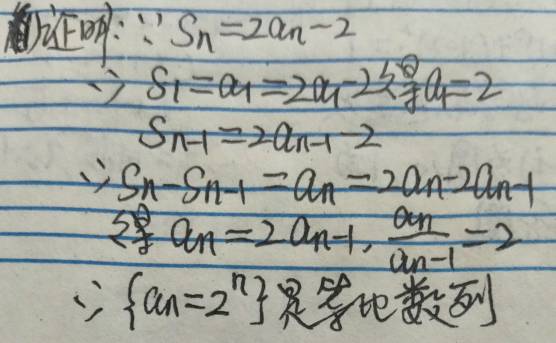 (1)证明:∵Sn=2an-2
∴S1=a1=2a1-2得a1=2
Sn-1=2an-1-2
∴Sn-Sn-1=an=2an-2an-1
得an=2an-1,an/an-1=2
∴{an=2^n}是等比数列